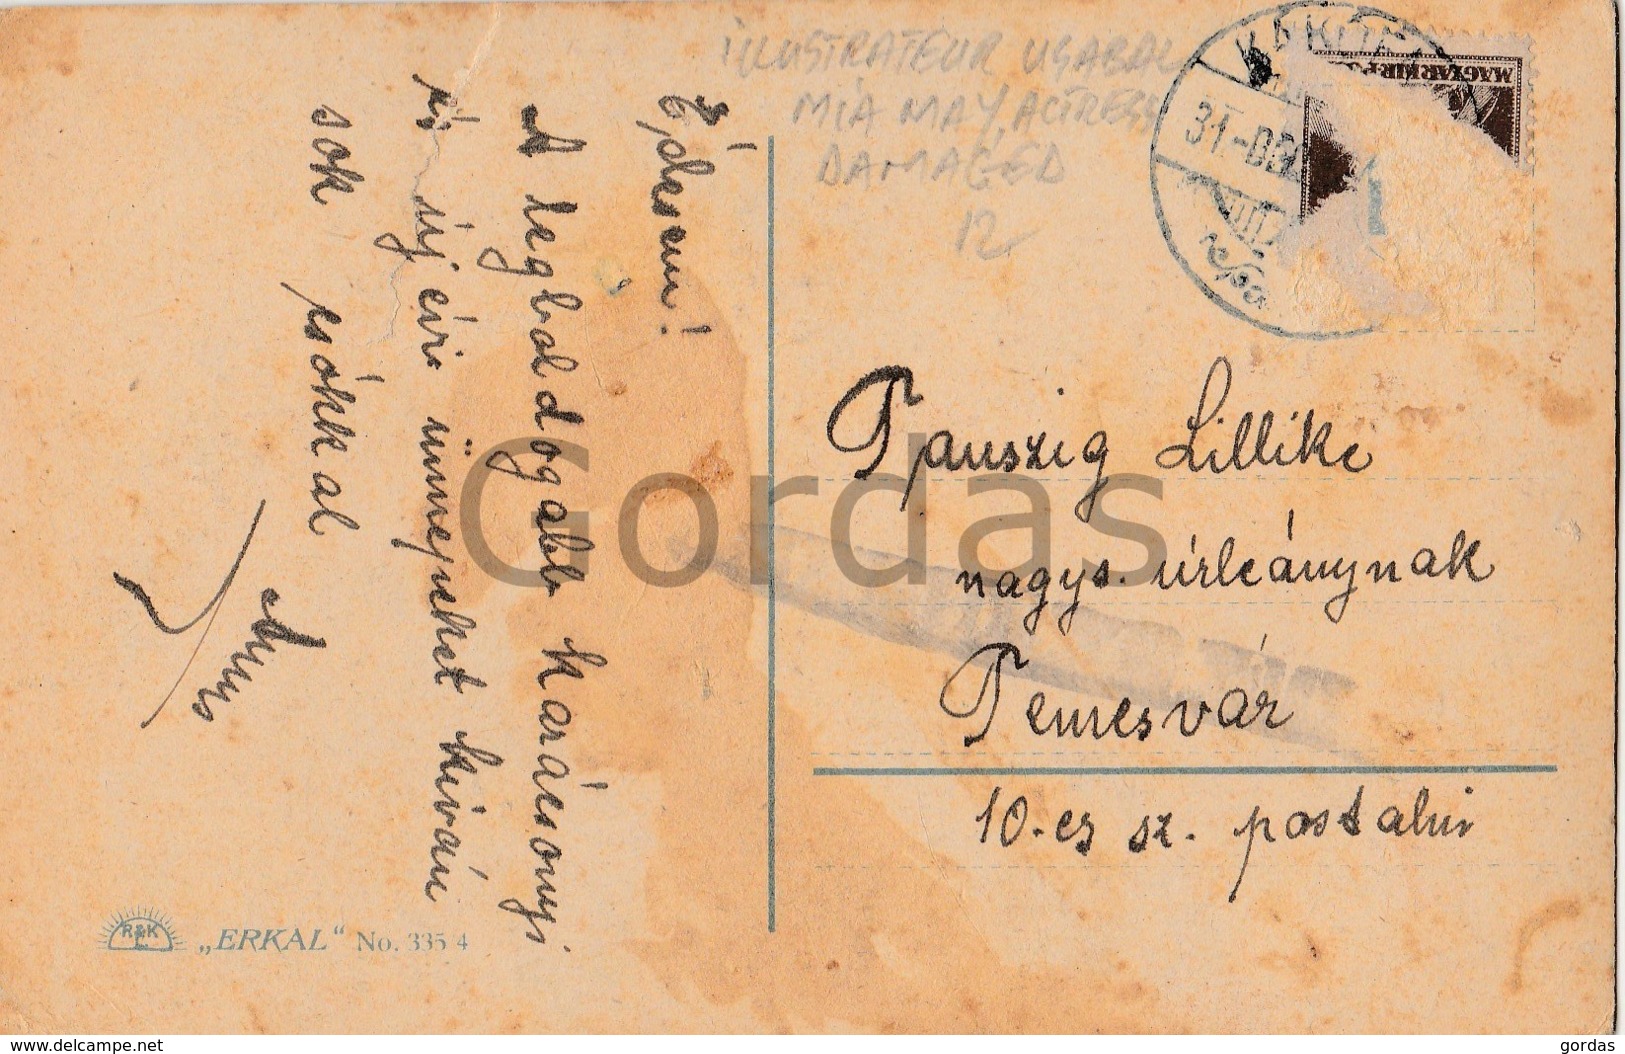 Édesem!
A legboldogabb karácsonyi
és új évi ünnepeket kíván
sok csókkal
ILLUSTRATEUR USABAL
MIA MAY, ACTRESS
DAMAGED
12
MAGYAR KIR. PO
31-DE
Tauszig Lillike
nagys. úrleánynak
Temesvár
10-es sz. postahiv
R&K
L
„ERKAL“ No. 335/4
Gordas
www.delcampe.net
gordas